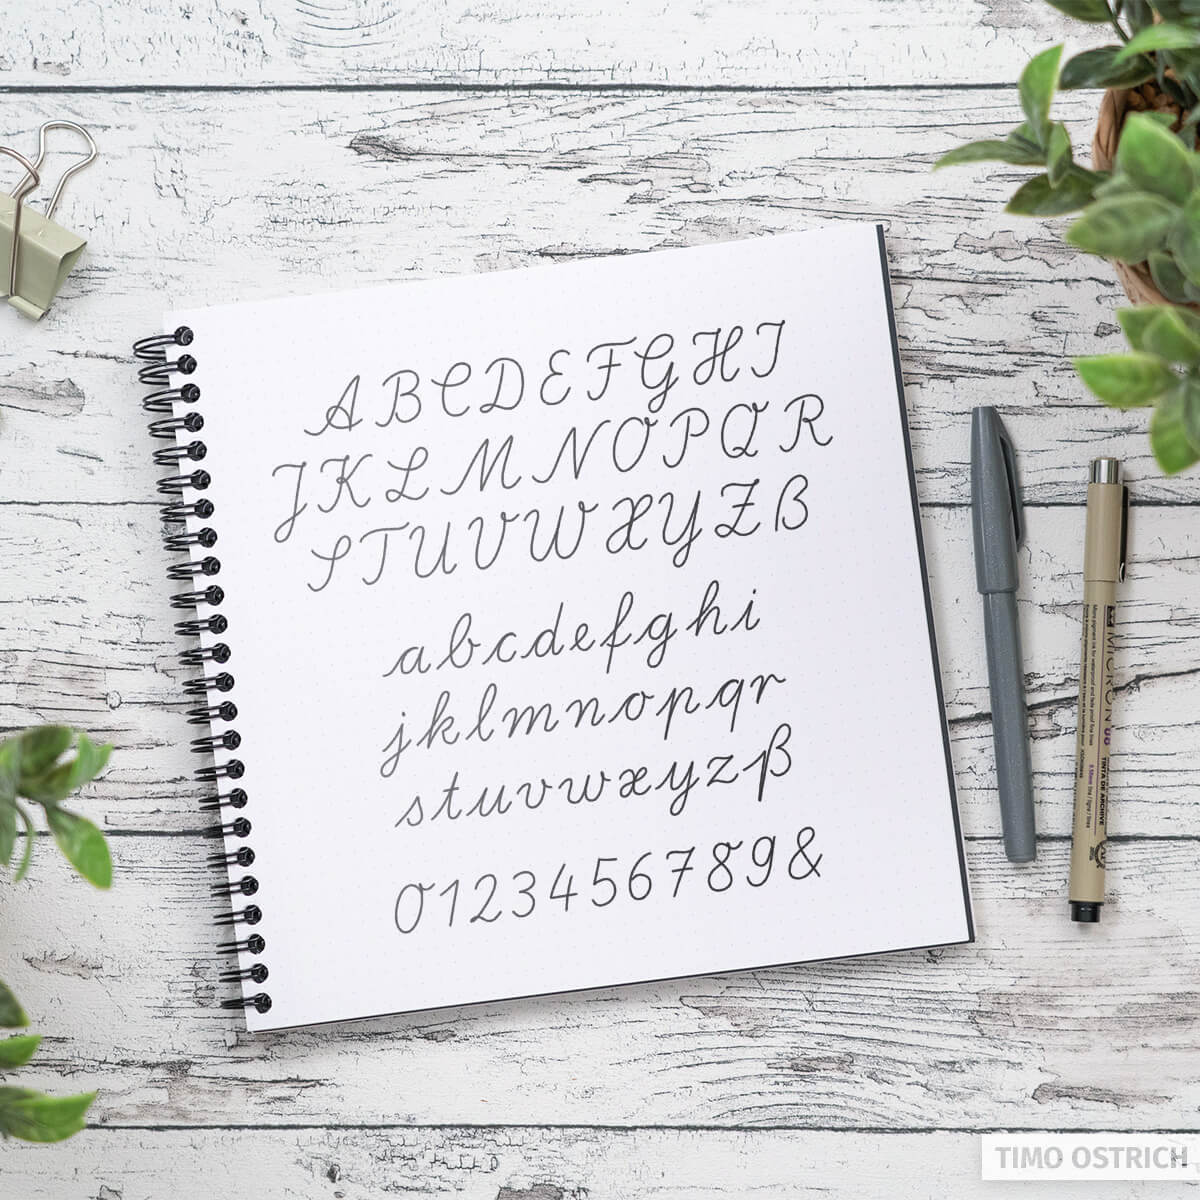 ABCDEFGHI
JKLMNOPQR
STUVWXYZẞ
abcdefghi
jklmnopqr
stuvwxyzß
0123456789&
MICRON 08
TINTA DE ARCHIVE
TIMO OSTRICH